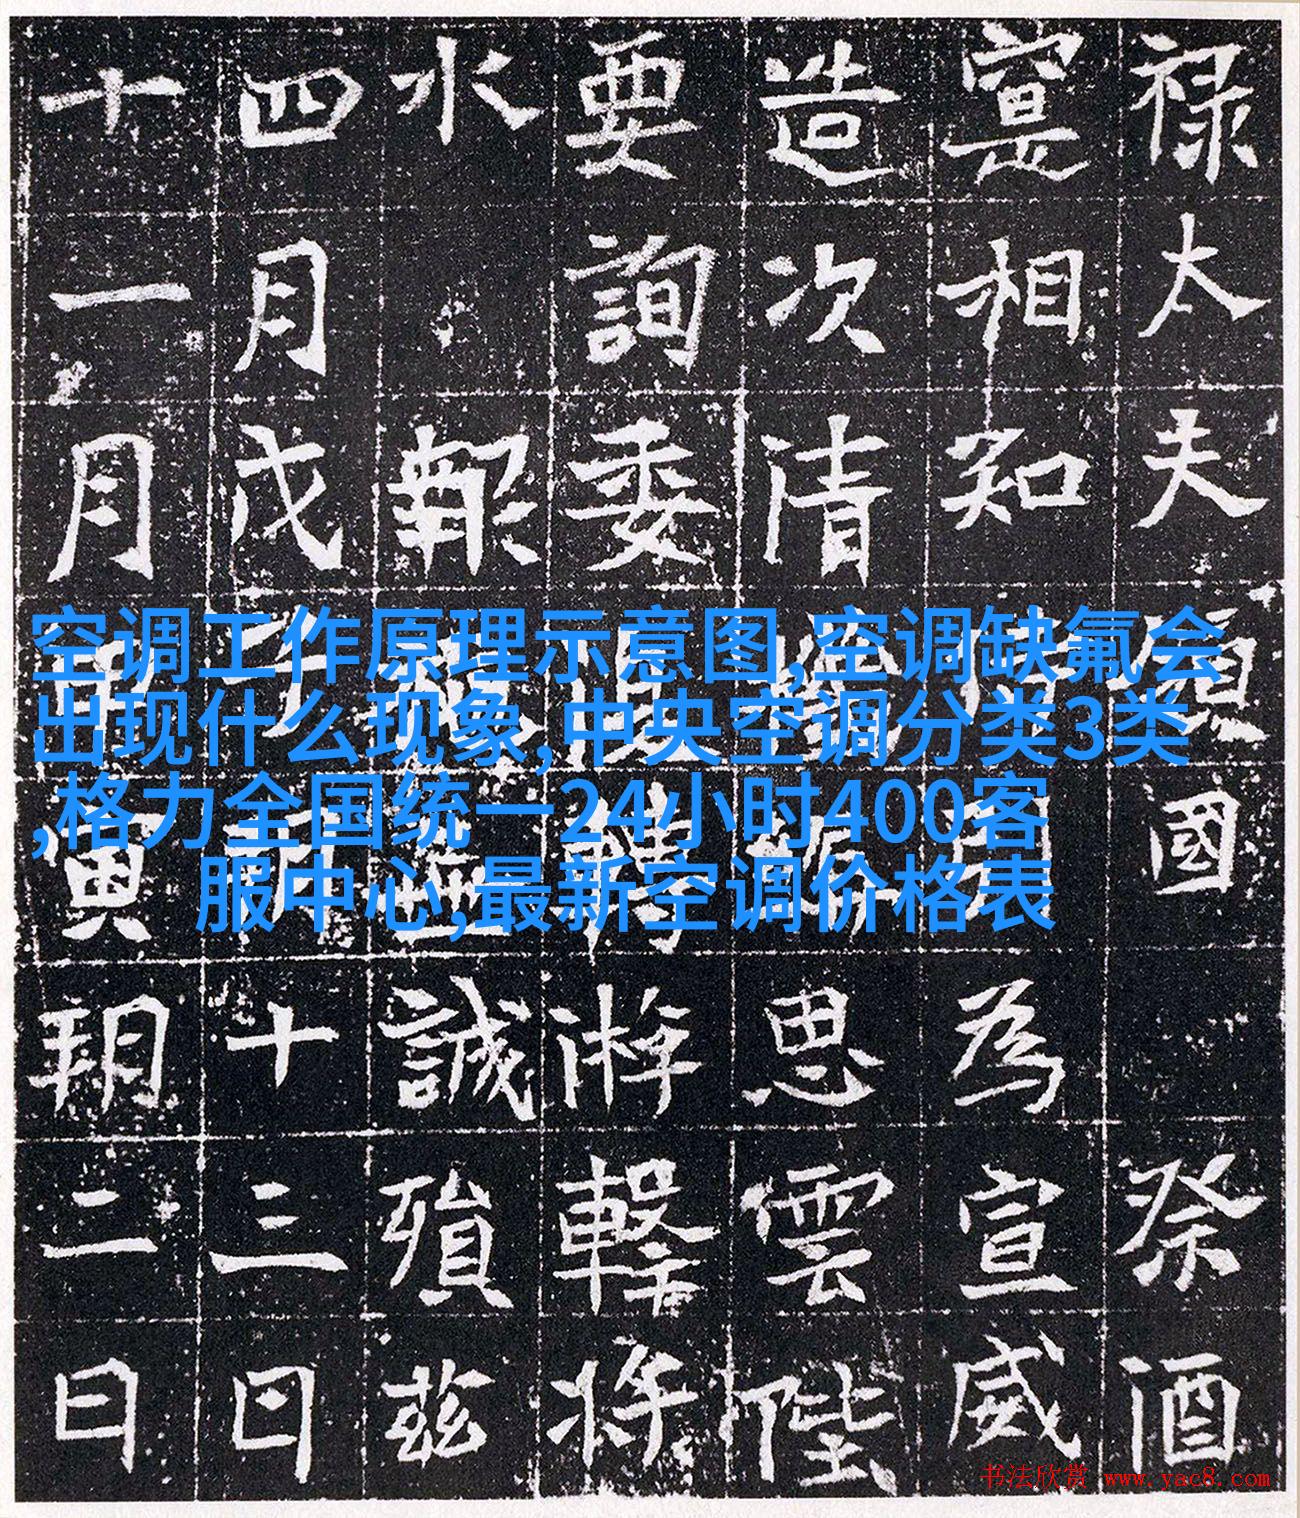 禄太夫國祭酒
寔相知為宣威
造次清思雲陛
要詢委游擊將
水報誠殞茲
四月戊十三日
十一月寅朔二日
空调工作原理示意图,空调缺氟会
出现什么现象,中央空调分类3类
,格力全国统一24小时400客
服中心,最新空调价格表
书法欣赏 www.yac8.com